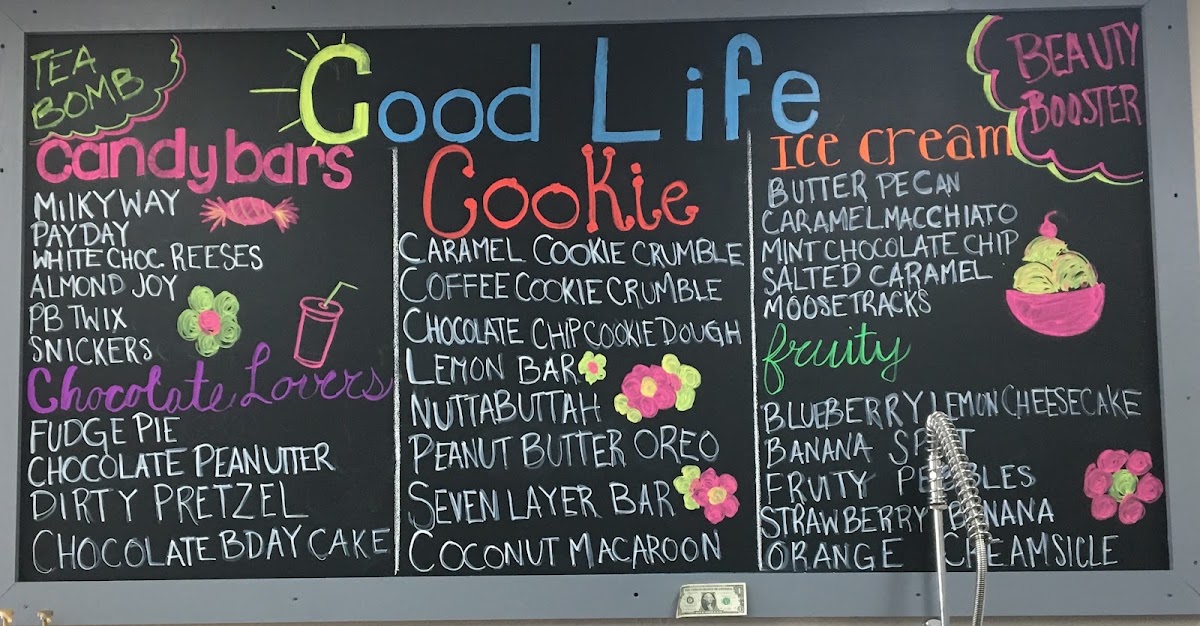 TEA
BOMB
Good Life
BEAUTY
BOOSTER
candybars
MILKYWAY
PAYDAY
WHITE CHOC. REESES
ALMOND JOY
PB TWIX
SNICKERS
Chocolate Lovers
FUDGE PIE
CHOCOLATE PEANUTTER
DIRTY PRETZEL
CHOCOLATE BDAY CAKE
Cookie
CARAMEL COOKIE CRUMBLE
COFFEE COOKIE CRUMBLE
CHOCOLATE CHIP COOKIE DOUGH
LEMON BAR
NUTTABUTTAH
PEANUT BUTTER OREO
SEVEN LAYER BAR
COCONUT MACAROON
Ice cream
BUTTER PECAN
CARAMEL MACCHIATO
MINT CHOCOLATE CHIP
SALTED CARAMEL
MOOSETRACKS
fruity
BLUEBERRY LEMON CHEESECAKE
BANANA SPLIT
FRUITY PEBBLES
STRAWBERRY BANANA
ORANGE CREAMSICLE